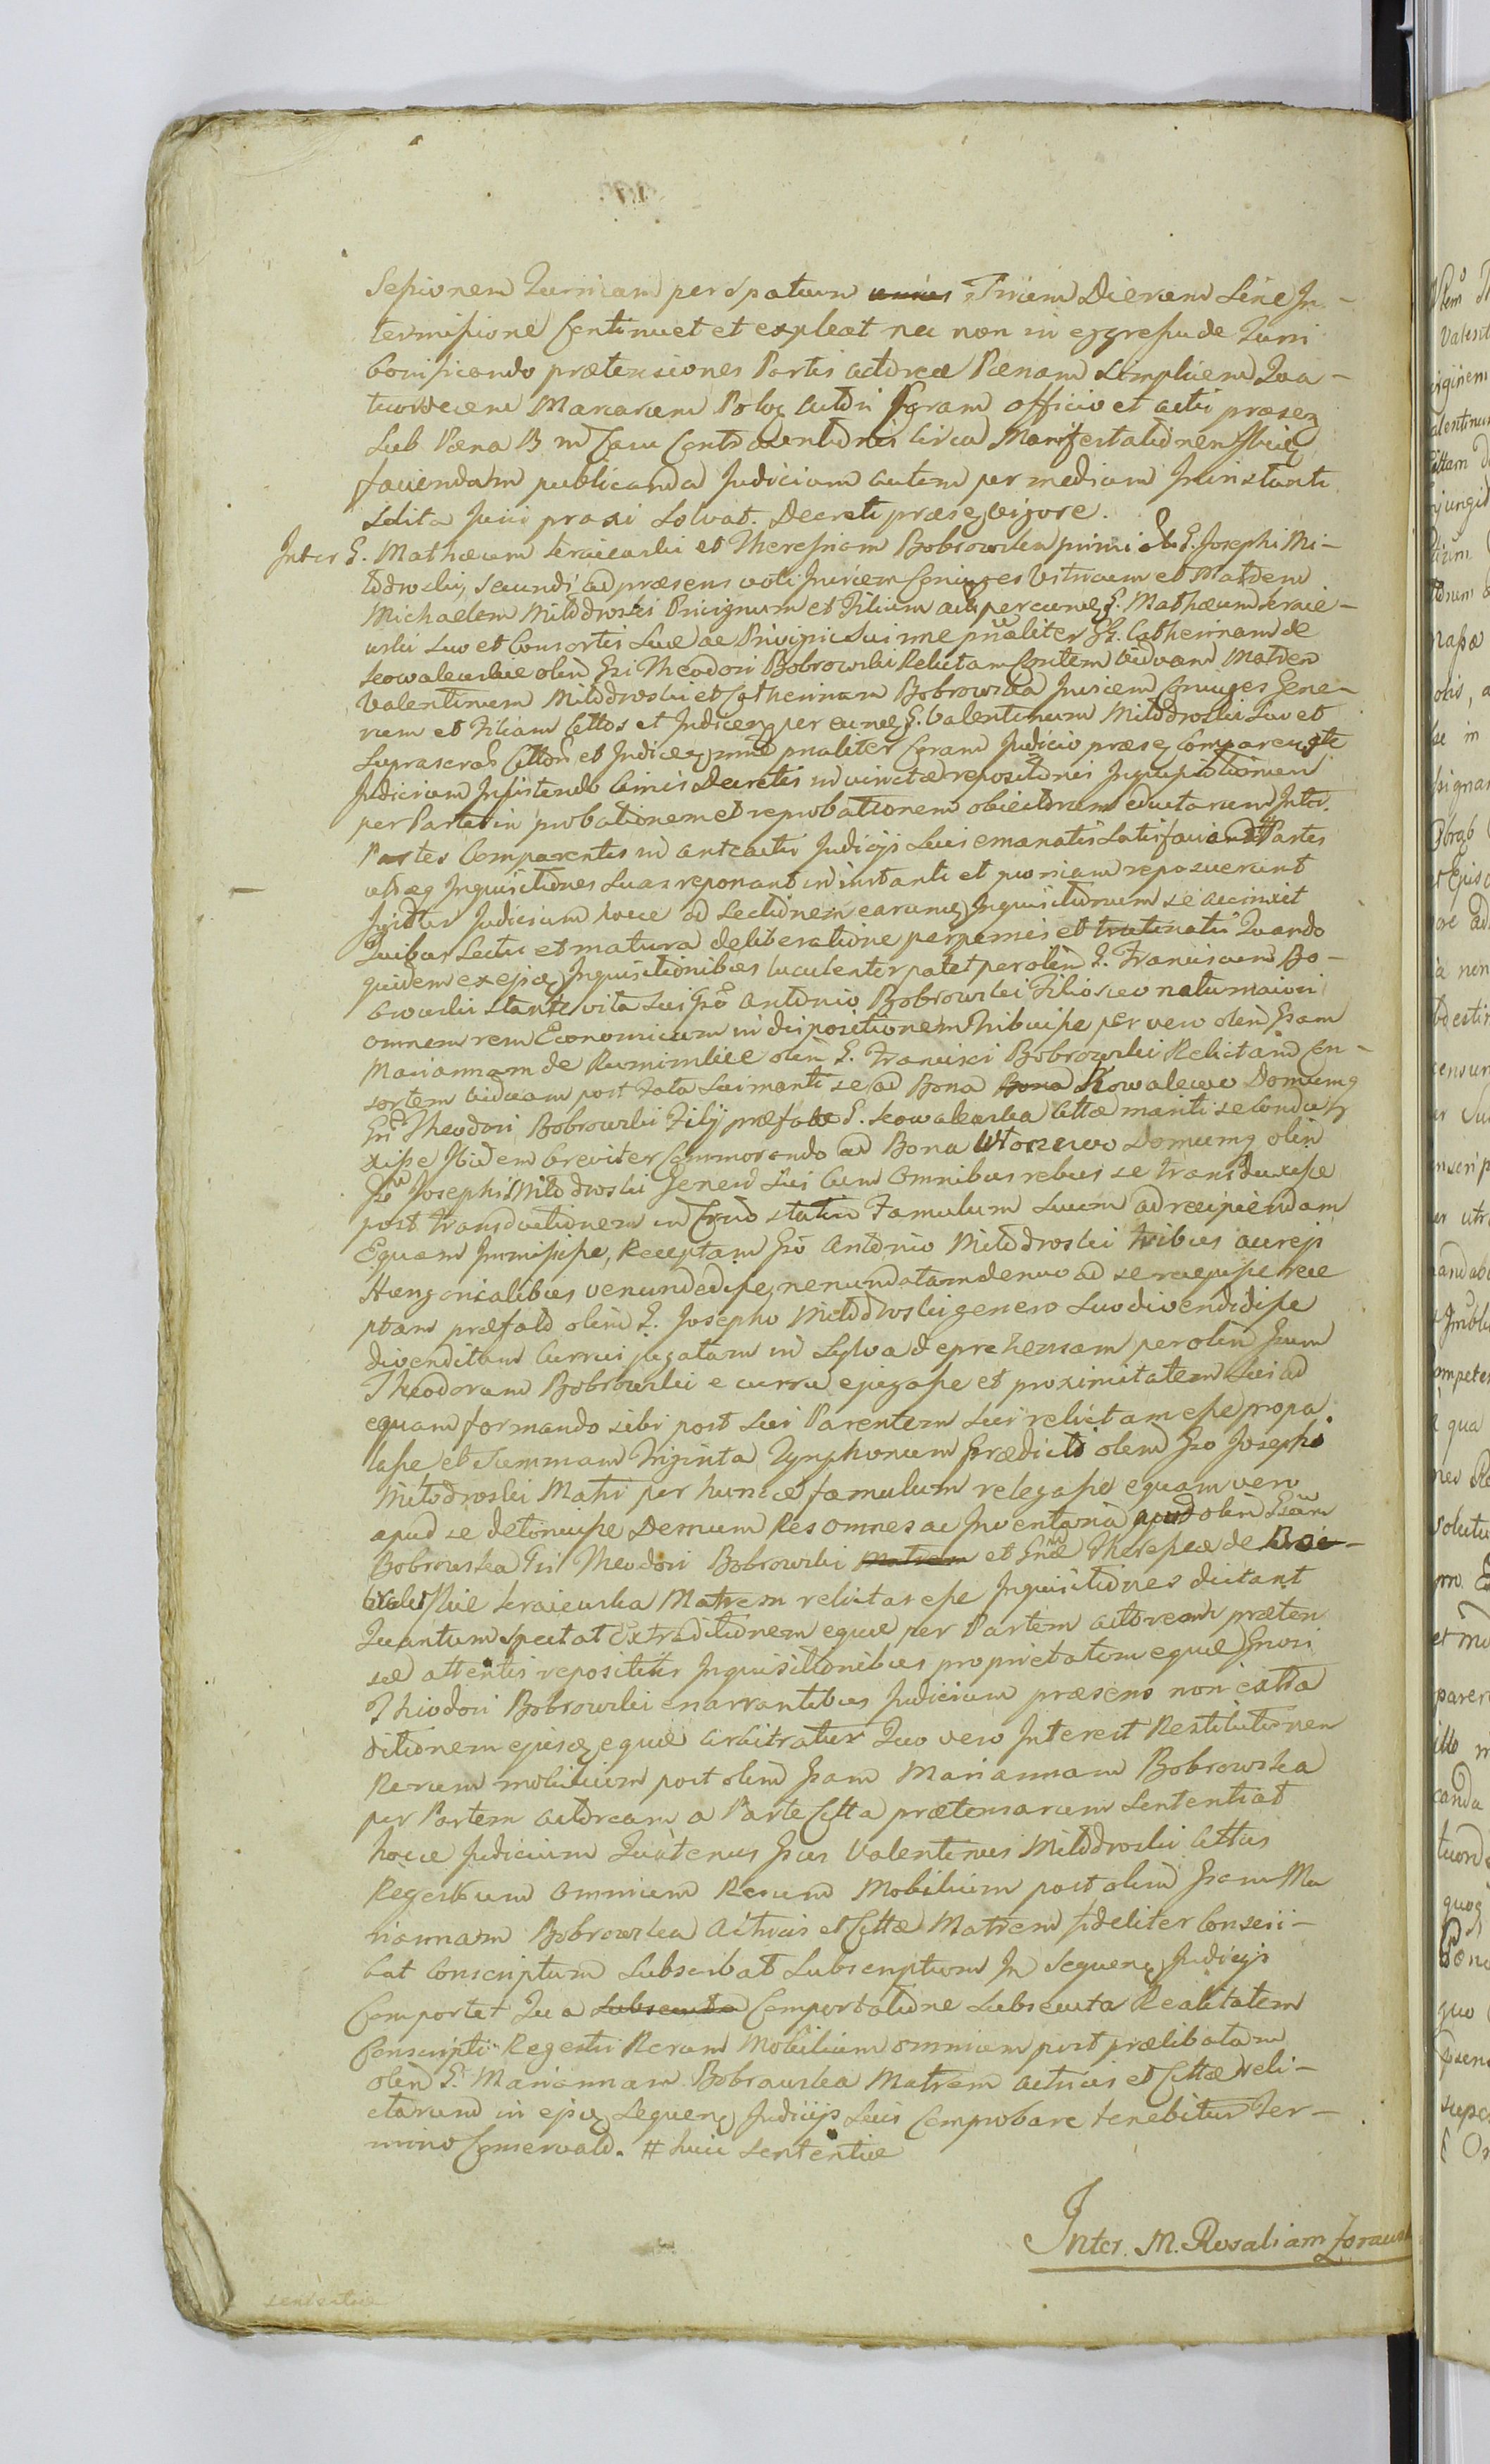 Sessionem Turricam per Spatium unius Trium Dierum Sine In-
termissione Continuet et expleat nec non in eggressu de Turri
bonificando prætensiones Partis actoreæ Pœnam Simplicem Qua-
tuordecem Marcarum Polon actori Coram officio et actis præsen
Sub Pœna B. in Casu Contraventionis circa Manifestationem
faciendam publicanda Judicium autem per medium Instanti
Solita Juris praxi Solvat. Decreti præsen vigore.
Inter G. Mathæum Kraiewski et Theresiam Bobrowska primi olim G. Josephi Mi-
łodroski, secundi ad præsens voti Invicem Coniuges Vitricum et Matrem
Michaelem Miłodroski Privignum et Filium act per eumq G. Mathæum Kraie-
wski Suo et Consortis Suæ ac Privigni Sui nne pnaliter Catherinam de
Kowalewskie olim Gsi Theodori Bobrowski Relictam Contem viduam Matrem
Valentinum Miłodroski et Catherinam Bobrowska Invicem Coniuges Gene-
rum et Filiam Cittos et Judicen per eumq G. Valentinum Miłodroski Suo et
Suprascrab Cittor et Judicen nne pnaliter Coram Judicio præsen Comparen
Judicium Insistendo binis Decretis in vim repositionis Inquisitionum
per Partes in probationem et reprobationem obiectorum eductarum Inter
Partes Comparentes in anteactis Judicijs Suis emanatis Satisfaciand Partes
utræq Inquisitiones Suas reponant in instanti et quoniam reposuerunt
Igitur Judicium hocce ad Lectionem earumq Inquisitionum se accinxit
Quibus Lectis et matura deliberatione perpensis et trutinatis Quando
quidem ex ejsq Inquisitionibus luculenter patet per olim G. Franciscum Bo-
browski stante vita Sui Gso Antonio Bobrowski Filio suo natu maiori
omnem rem Economicam in dispositionem tribuisse per vero olim Gsam
Mariannam de Rumińskie olim G. Francisci Bobrowski Relictam Con-
sortem viduam post Fata Sui mariti se ad Bona Bona Kowalewo Domumq
Gsi Theodori Bobrowski Filij præfatæ G. Kowalewska Cittæ mariti se condu-
xisse Ibidem breviter Commorando ad Bona Wtorzewo Domumq olim
Josephi Miłodroski Generi Sui Cum Omnibus rebus se transduxisse
post transductionem in statu Famulum Suum ad recipiendam
Equam Immisisse, Receptam Gso Antonio Miłodroski tribus aureis
Hungaricalibus venundedisse, venundatam denuo ad se recepisse rece
ptam præfato olim G. Josepho Miłodroski genero Suo divendidisse
divenditam Currui jugatam in Sylva deprehensam per olim Gsum
Theodorum Bobrowski e curru ejugasse et proximitatem Sui ad
equam formando sibi post Sui Parentem Sui relictam esse propa
lasse et Summam triginta Tynphonum Prædicto olim Gso Josepho
Miłodroski Matri per huncce famulum relegasse equam vero
apud se detinuisse Demum Res omnes ac Inventaria apud olim Gsam
Bobrowska Gsi Theodori Bobrowski Matrem et Gnæ Theresiæ de Bo-
browskie Kraiewska Matrem relictas esse Inquisitiones dictant
Quantum spectat Extraditionem equæ per Partem actoream præten
sæ attentis repositis Inquisitionibus proprietatem equæ Gnosi
Thiodori Bobrowski enarrantibus Judicium præsens non extra
ditionem ejusq equæ arbitratur Quo vero Interest Restitutionem
Rerum mobilium post olim Gsam Mariannam Bobrowska
per Partem actoream a Parte Citta prætensarum Sententiat
hocce Judicium Quatenus Gsus Valentinus Miłodroski Cittus
Regestrum Omnium Rerum Mobilium post olim Gsam Ma
riannam Bobrowska Actricis et Cittæ Matrem fideliter Conscri-
bat Conscriptum Subscribat Subscriptum In Sequen Judicijs
Comportet Qua Subsecuta Comportatione Subsecuta Realitatem
Conscripti Regestri Rerum Mobilium omnium post prælibatam
olim G. Mariannam Bobrowska Matrem Actricis et Cittæ reli-
ctarum in ejsq Sequen Judicijs Suis Comprobare tenebitur Ter-
mino Conservato. # huic Sententiæ
Inter M. Rosaliam
sententiæ